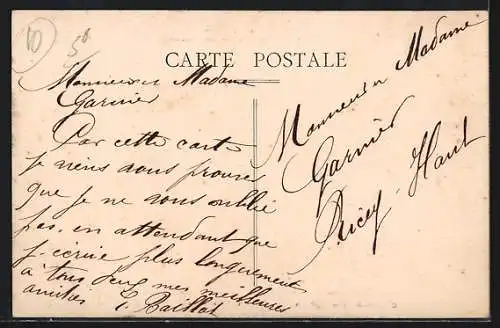 10
5f
CARTE POSTALE
Monsieur & Madame
Garnier
Par cette carte
je viens vous prouver
que je ne vous oublie
pas, en attendant que
j'écrive plus longuement
à tous deux mes meilleures
amitiés
E. Baillot
Monsieur & Madame
Garnier
Ricey-Haut